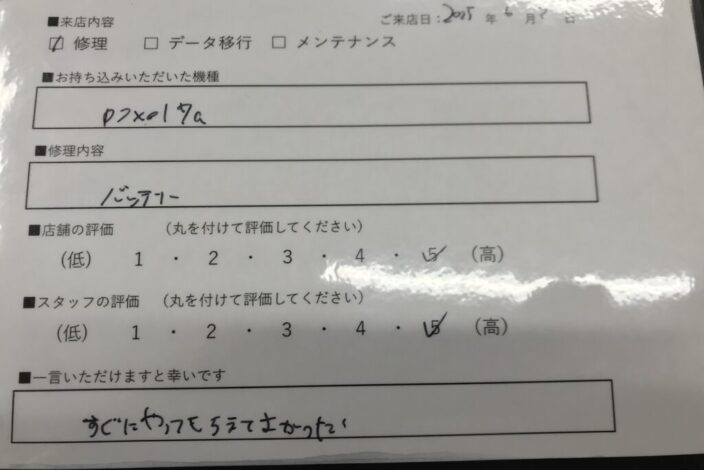 ■来店内容 ご来店日：2025年6月 日
☑ 修理 □ データ移行 □ メンテナンス
■お持ち込みいただいた機種
pixel 7a
■修理内容
バッテリー
■店舗の評価 （丸を付けて評価してください）
（低） 1 ・ 2 ・ 3 ・ 4 ・ 5 （高）
■スタッフの評価 （丸を付けて評価してください）
（低） 1 ・ 2 ・ 3 ・ 4 ・ 5 （高）
■一言いただけますと幸いです
すぐにやってもらえてよかったです